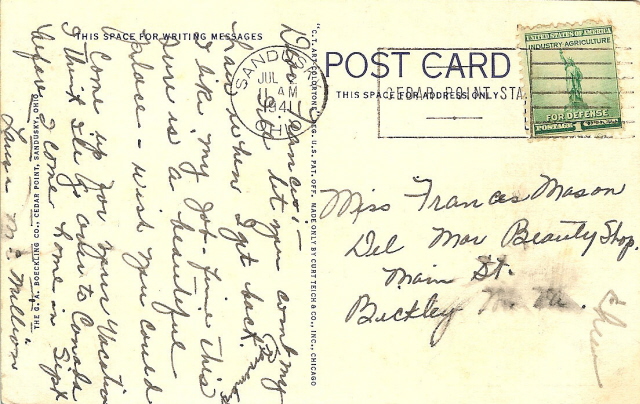 THIS SPACE FOR WRITING MESSAGES
Dear Frances:-
I'll let you comb my
hair when I get back.
I like my job - fine this
sure is a beautiful
place - wish you could
Come up for your Vacation
I think I'll go over to Canada
before I come home in Sept
Laura M. Million
THE G. A. BOECKLING CO., CEDAR POINT, SANDUSKY, OHIO
"C.T. ART-COLORTONE" REG. U.S. PAT. OFF. MADE ONLY BY CURT TEICH & CO., INC., CHICAGO
SANDUSKY
JUL
AM
1941
OHIO
POST CARD
THIS SPACE FOR ADDRESS ONLY
CEDAR POINT STA.
UNITED STATES OF AMERICA
INDUSTRY AGRICULTURE
FOR DEFENSE
POSTAGE 1 CENTS
Miss Frances Mason
Del Mar Beauty Shop.
Main St.
Beckley W. Va.